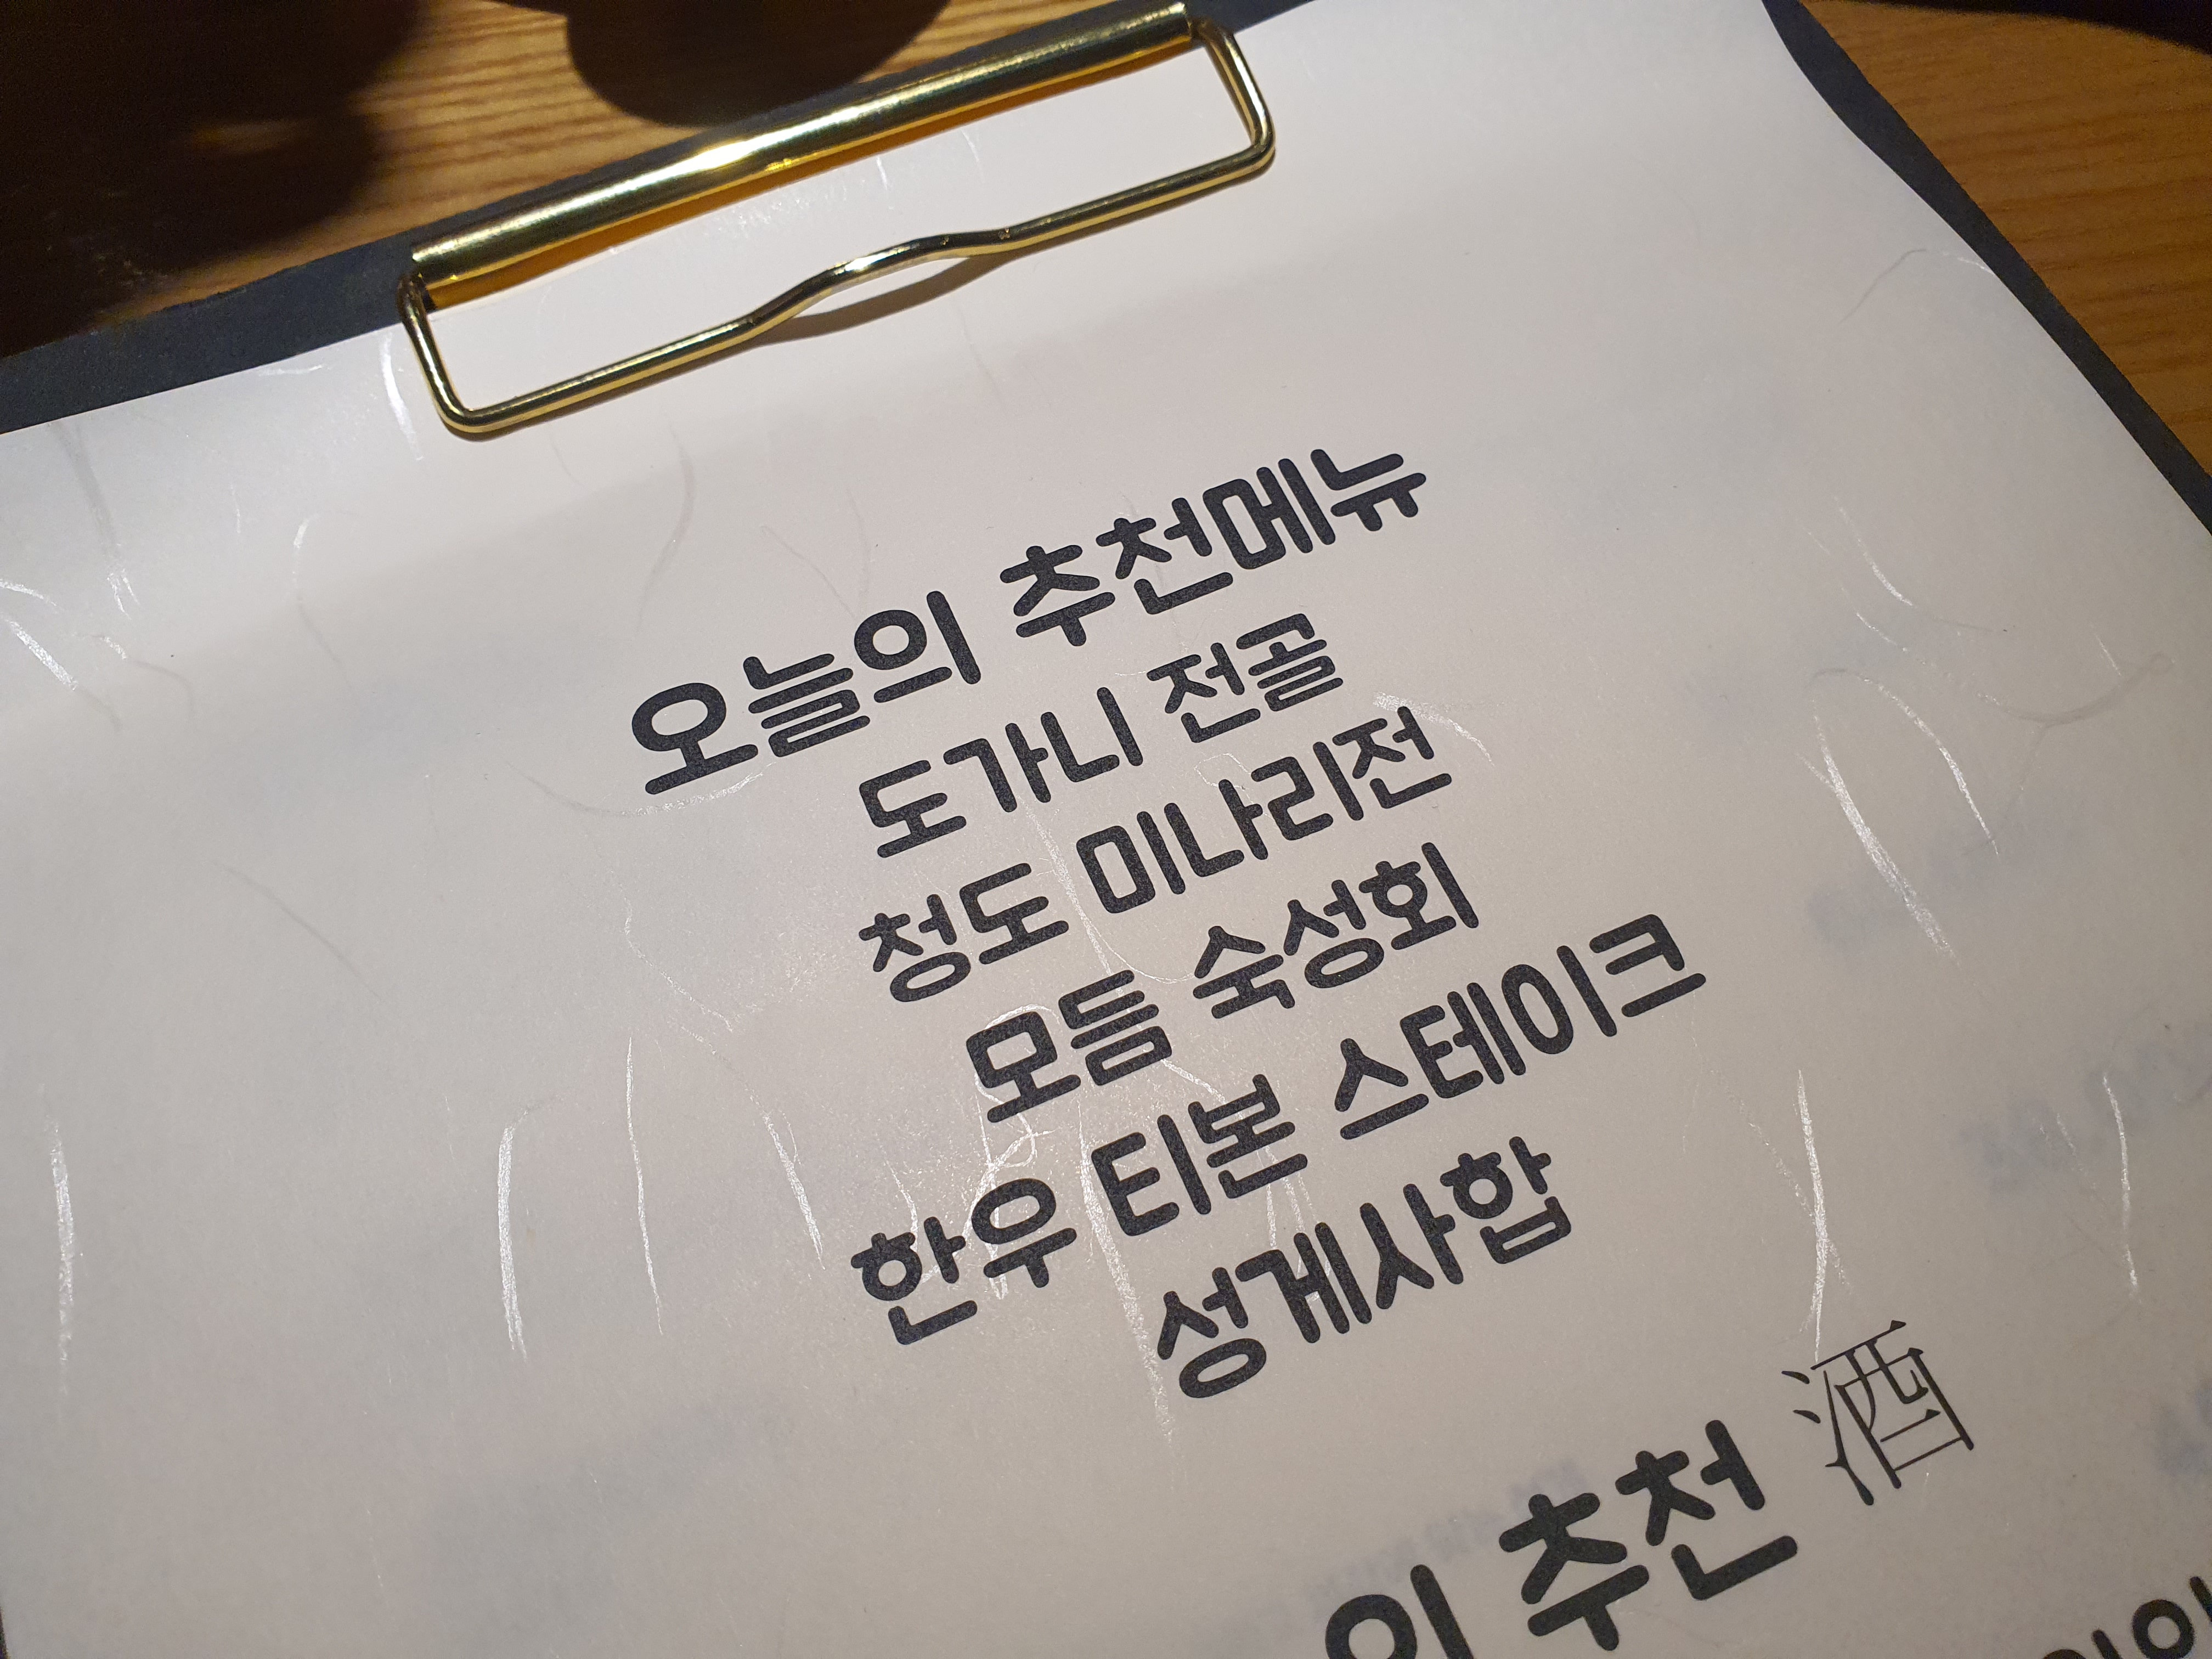 오늘의 추천메뉴
도가니 전골
청도 미나리전
모듬 숙성회
한우 티본 스테이크
성게사합
의 추천 酒